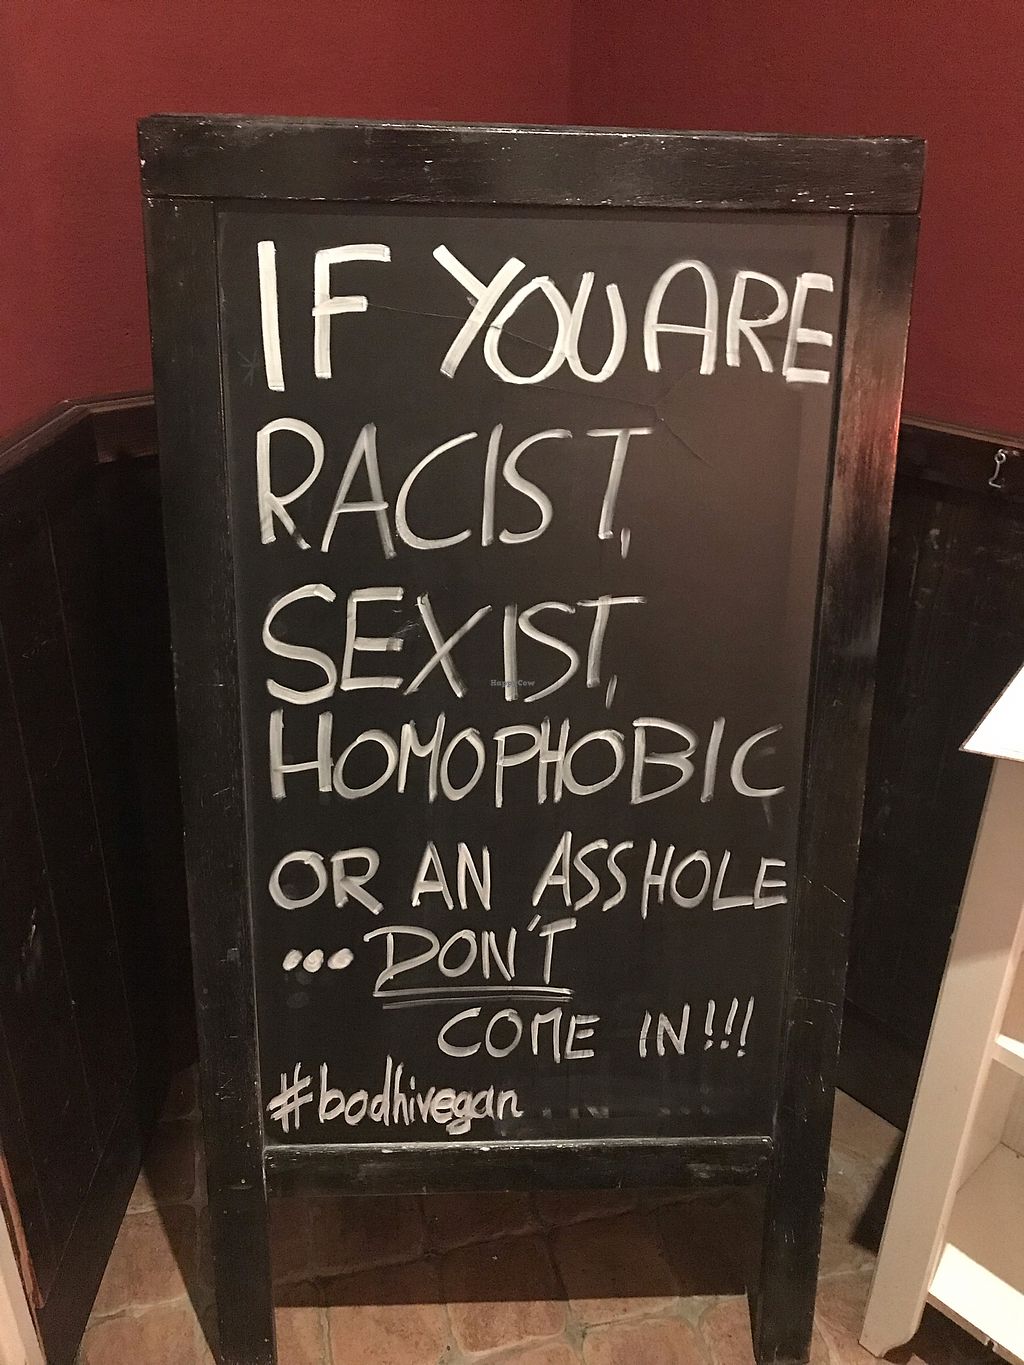 IF YOU ARE
RACIST,
SEXIST,
HappyCow
HOMOPHOBIC
OR AN ASSHOLE
...DON'T
COME IN!!!
#bodhivegan